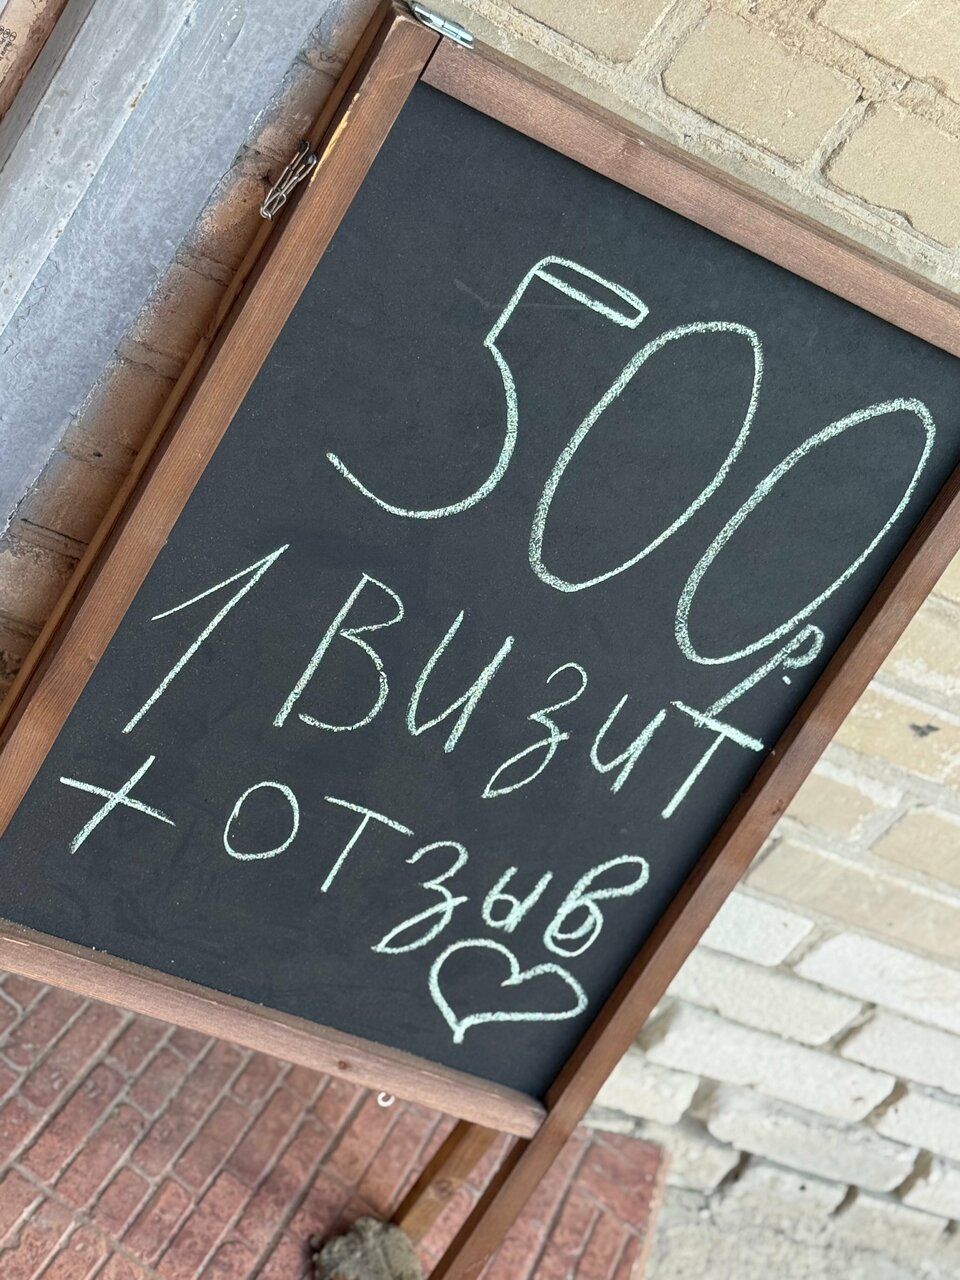 500р.
1 Визит
+ отзыв